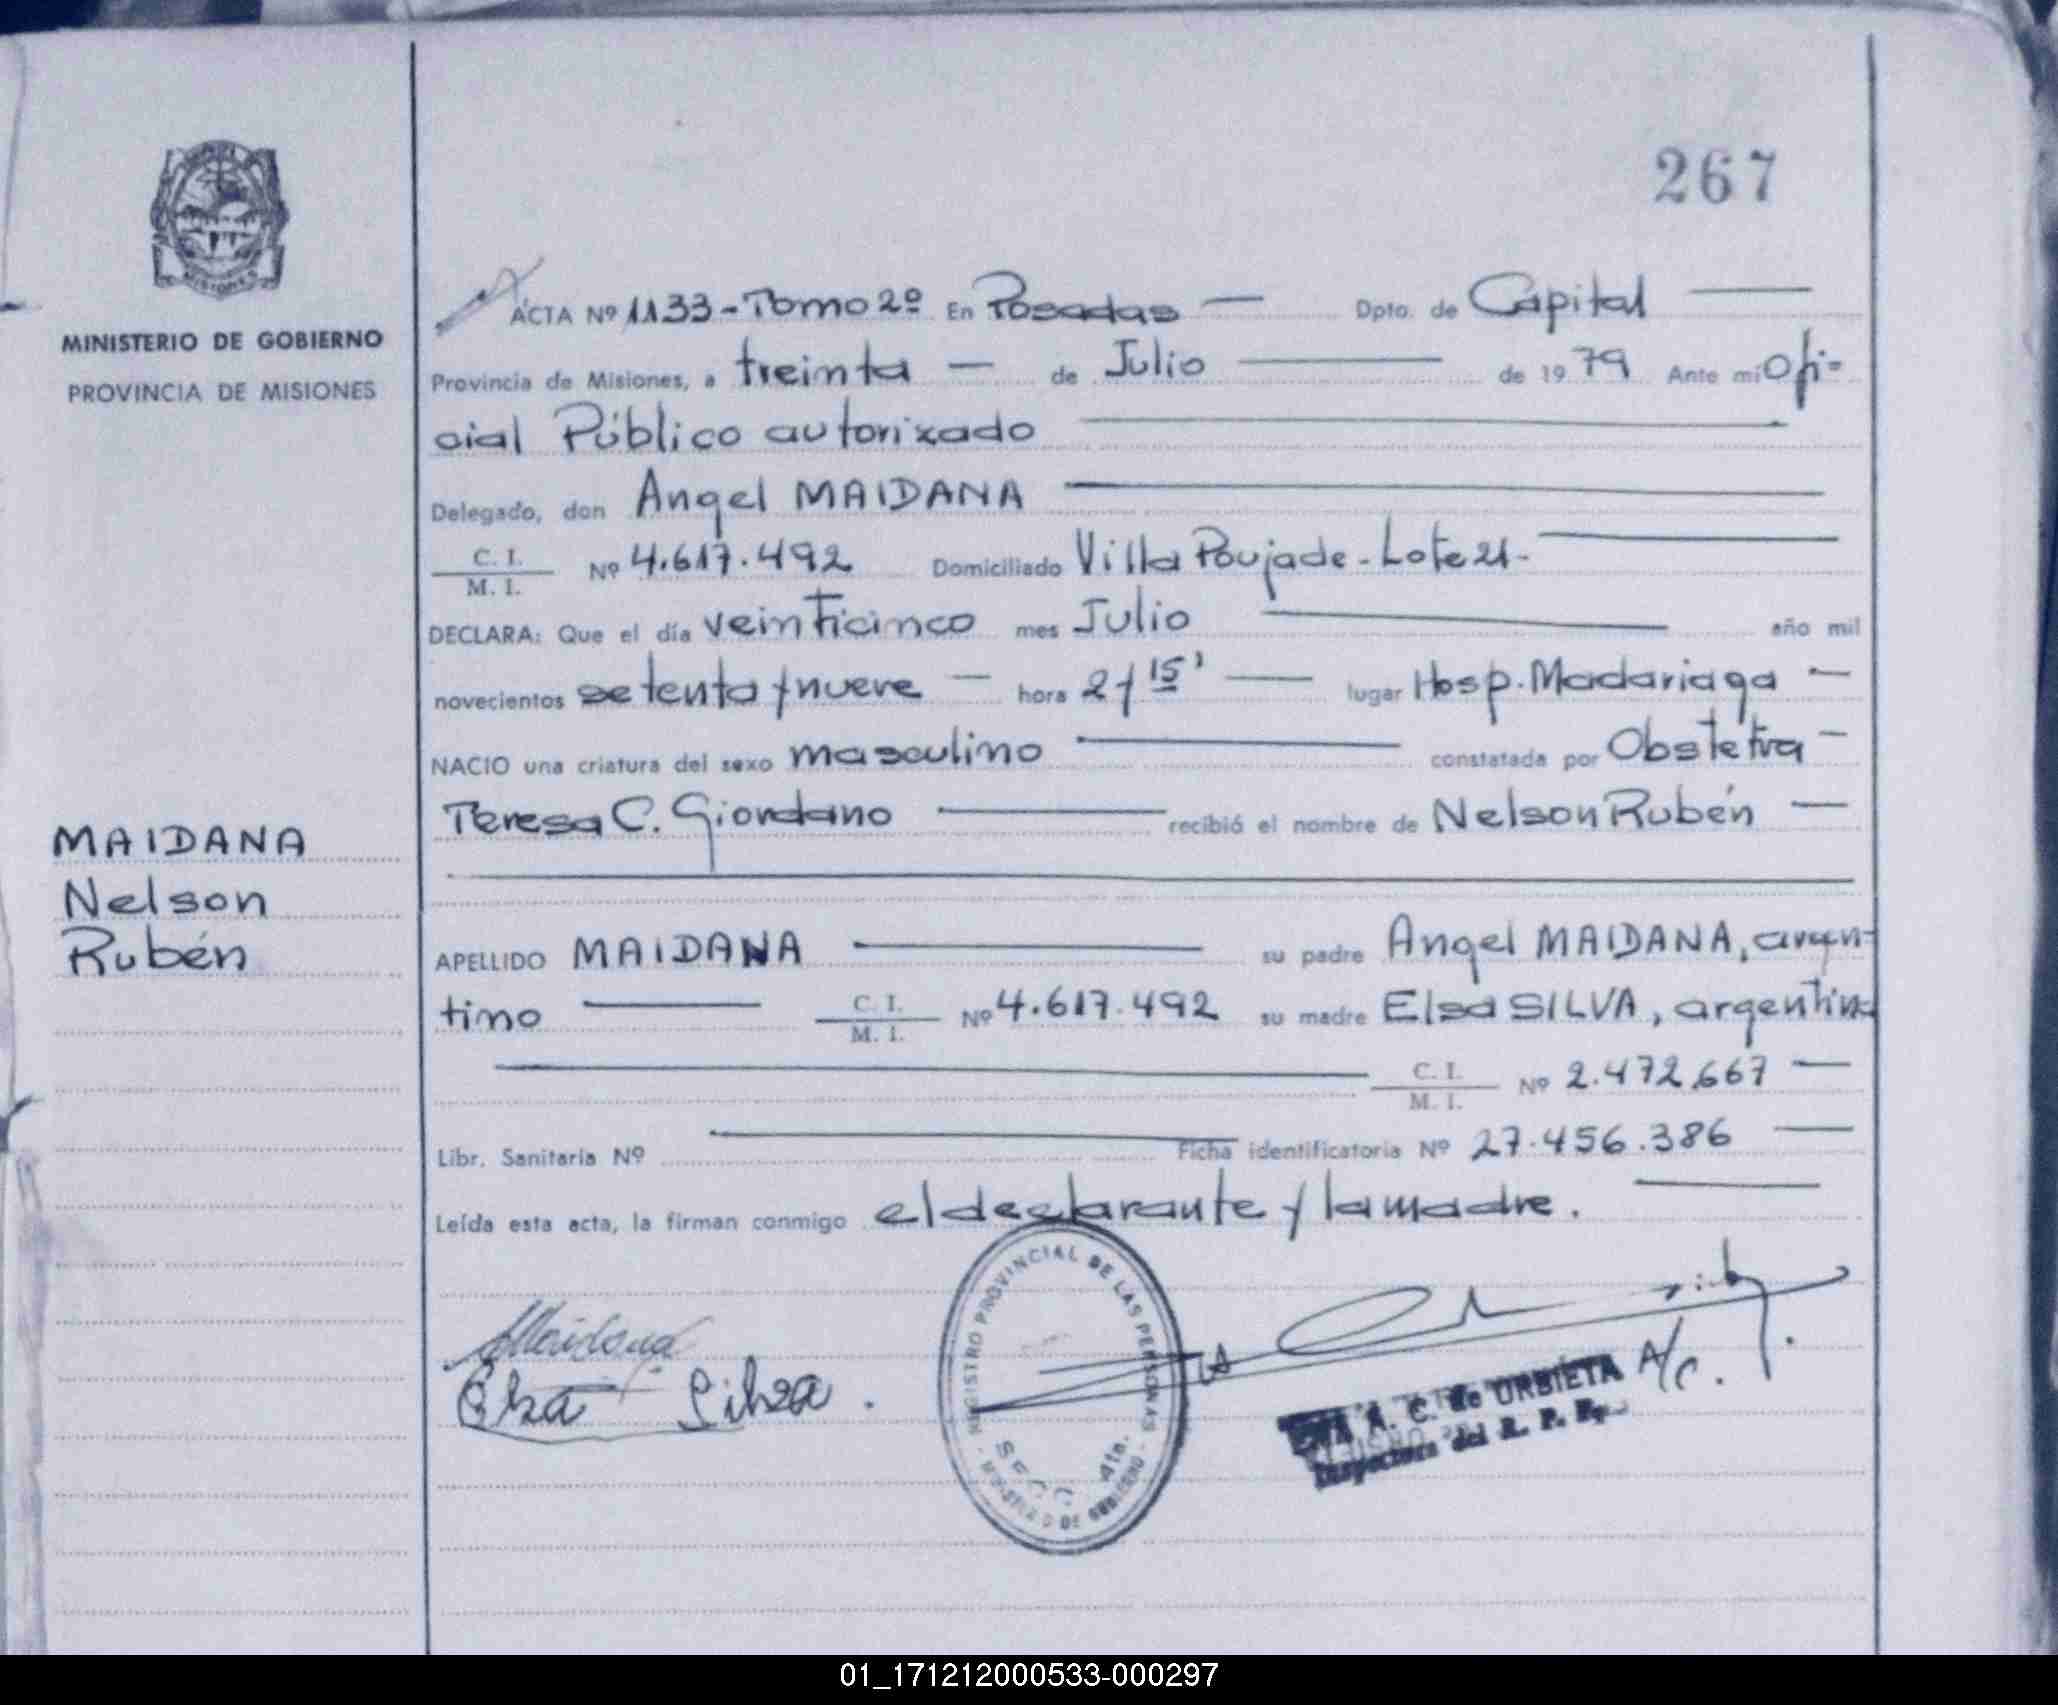 267
MINISTERIO DE GOBIERNO
PROVINCIA DE MISIONES
MAIDANA
Nelson
Rubén
ACTA Nº 1133 - Tomo 2º En Posadas — Dpto. de Capital —
Provincia de Misiones, a treinta — de Julio — de 1979 Ante mi Ofi=
cial Público autorizado —
Delegado, don Angel MAIDANA —
C. I. / M. I. Nº 4.617.492 Domiciliado Villa Poujade - Lote 21 - —
DECLARA: Que el día veinticinco mes Julio — año mil
novecientos setenta y nueve — hora 21 15' — lugar Hosp. Madariaga —
NACIO una criatura del sexo masculino — constatada por Obstetra —
Teresa C. Giordano — recibió el nombre de Nelson Rubén —
APELLIDO MAIDANA — su padre Angel MAIDANA, argen=
tino — C. I. / M. I. Nº 4.617.492 su madre Elsa SILVA, argentina
— C. I. / M. I. Nº 2.472.667 —
Libr. Sanitaria Nº — Ficha identificatoria Nº 27.456.386 —
Leída esta acta, la firman conmigo el declarante y la madre. —
Maidana
Elsa Silva.
REGISTRO PROVINCIAL DE LAS PERSONAS
SECC. 4ta.
MINISTERIO DE GOBIERNO
A. C. de URBIETA A/C.
Inspectora del R. P. P.
01_171212000533-000297